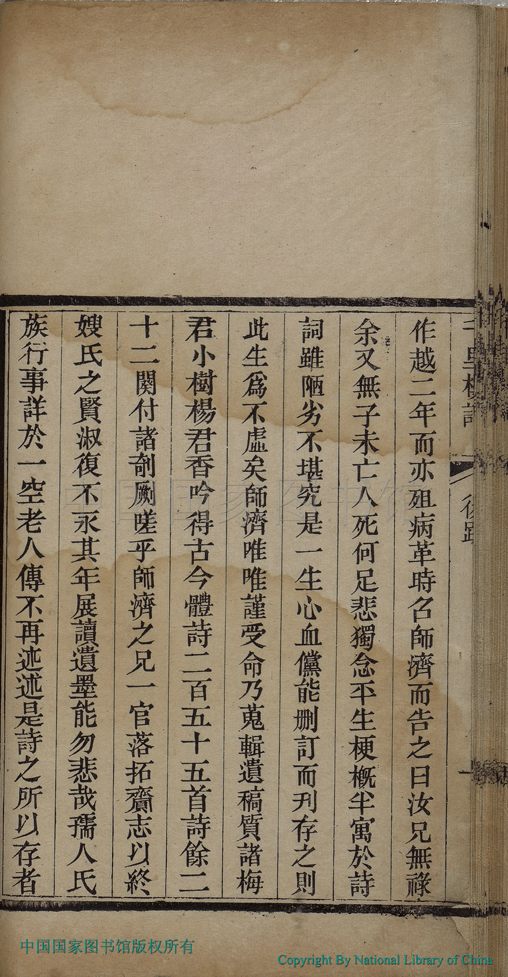 作越二年而亦殂病革時名師濟而告之曰汝兄無祿
余又無子未亡人死何足悲獨念平生梗概半寓於詩
詞雖陋劣不堪究是一生心血儻能刪訂而刊存之則
此生爲不虛矣師濟唯唯謹受命乃蒐輯遺稿質諸梅
君小樹楊君香吟得古今體詩二百五十五首詩餘二
十二闋付諸剞劂嗟乎師濟之兄一官落拓齎志以終
嫂氏之賢淑復不永其年展讀遺墨能勿悲哉孺人氏
族行事詳於一空老人傳不再述述是詩之所以存者
中国国家图书馆版权所有
Copyright By National Library of China